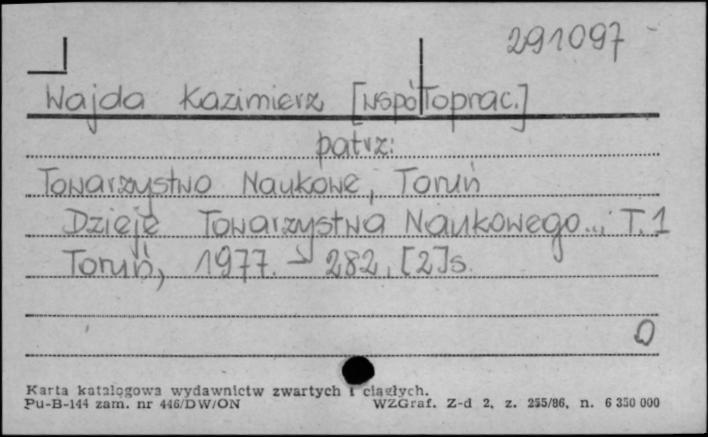 291097
Wajda Kazimierz [współoprac.]
patrz:
Towarzystwo Naukowe, Toruń
Dzieje Towarzystwa Naukowego... T. 1
Toruń, 1977. – 282, [2]s.
0
Karta katalogowa wydawnictw zwartych i ciągłych.
Pu-B-144 zam. nr 446/DW/ON WZGraf. Z-d 2, z. 255/86, n. 6 350 000